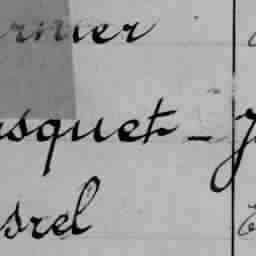 rnier
squet - J
srel